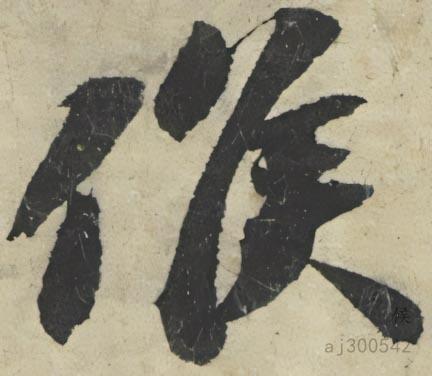 侯
侯
aj300542